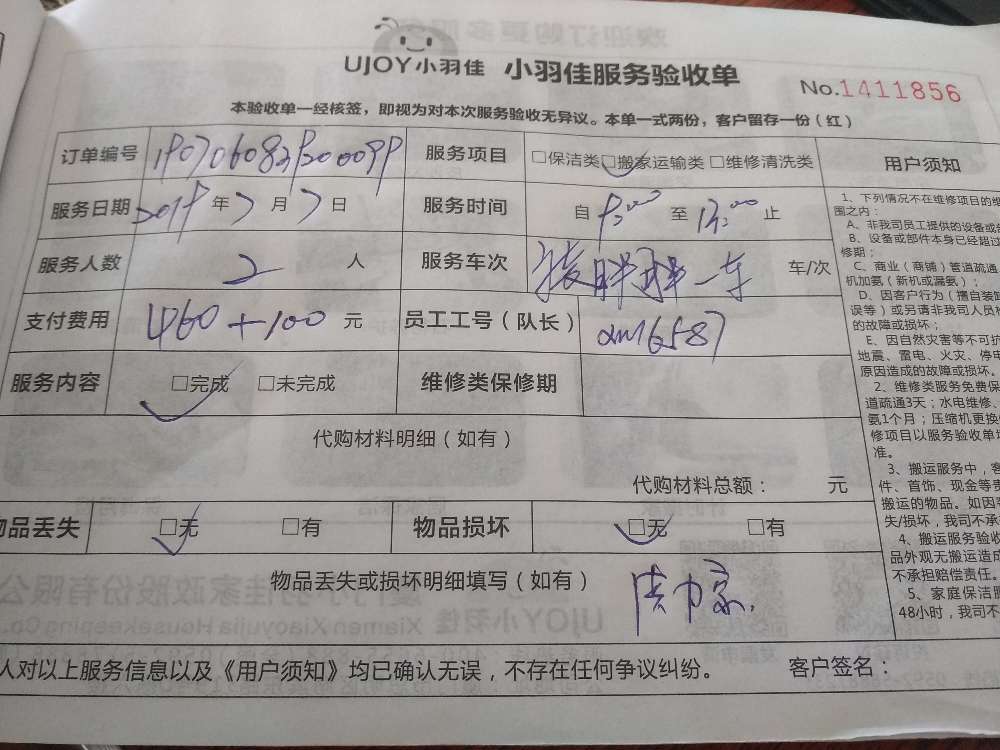 UJOY小羽佳 小羽佳服务验收单
No.1411856
本验收单一经核签，即视为对本次服务验收无异议。本单一式两份，客户留存一份（红）
订单编号 服务项目 □保洁类 □搬家运输类 □维修清洗类 用户须知
服务日期 2019年7月7日 服务时间 自 9:00 至 13:00 止
服务人数 2 人 服务车次 一车 车/次
支付费用 460+100 元 员工工号（队长） xm16587
服务内容 □完成 □未完成 维修类保修期
代购材料明细（如有）
代购材料总额： 元
物品丢失 □无 □有 物品损坏 □无 □有
物品丢失或损坏明细填写（如有）
人对以上服务信息以及《用户须知》均已确认无误，不存在任何争议纠纷。 客户签名：
1、下列情况不在维修项目的维
围之内：
A、非我司员工提供的设备或
B、设备或部件本身已经超过
修期；
C、商业（商铺）管道疏通
机加氨（新机或漏氨）；
D、因客户行为（擅自装卸
误等）或另请非我司人员
的故障或损坏；
E、因自然灾害等不可抗
地震、雷电、火灾、停电
原因造成的故障或损坏。
2、维修类服务免费保
道疏通3天；水电维修、
氨1个月；压缩机更换
修项目以服务验收单
准。
3、搬运服务中，客
件、首饰、现金等贵
搬运的物品。如因
失/损坏，我司不承
4、搬运服务验收
品外观无搬运造成
不承担赔偿责任。
5、家庭保洁服
48小时，我司不